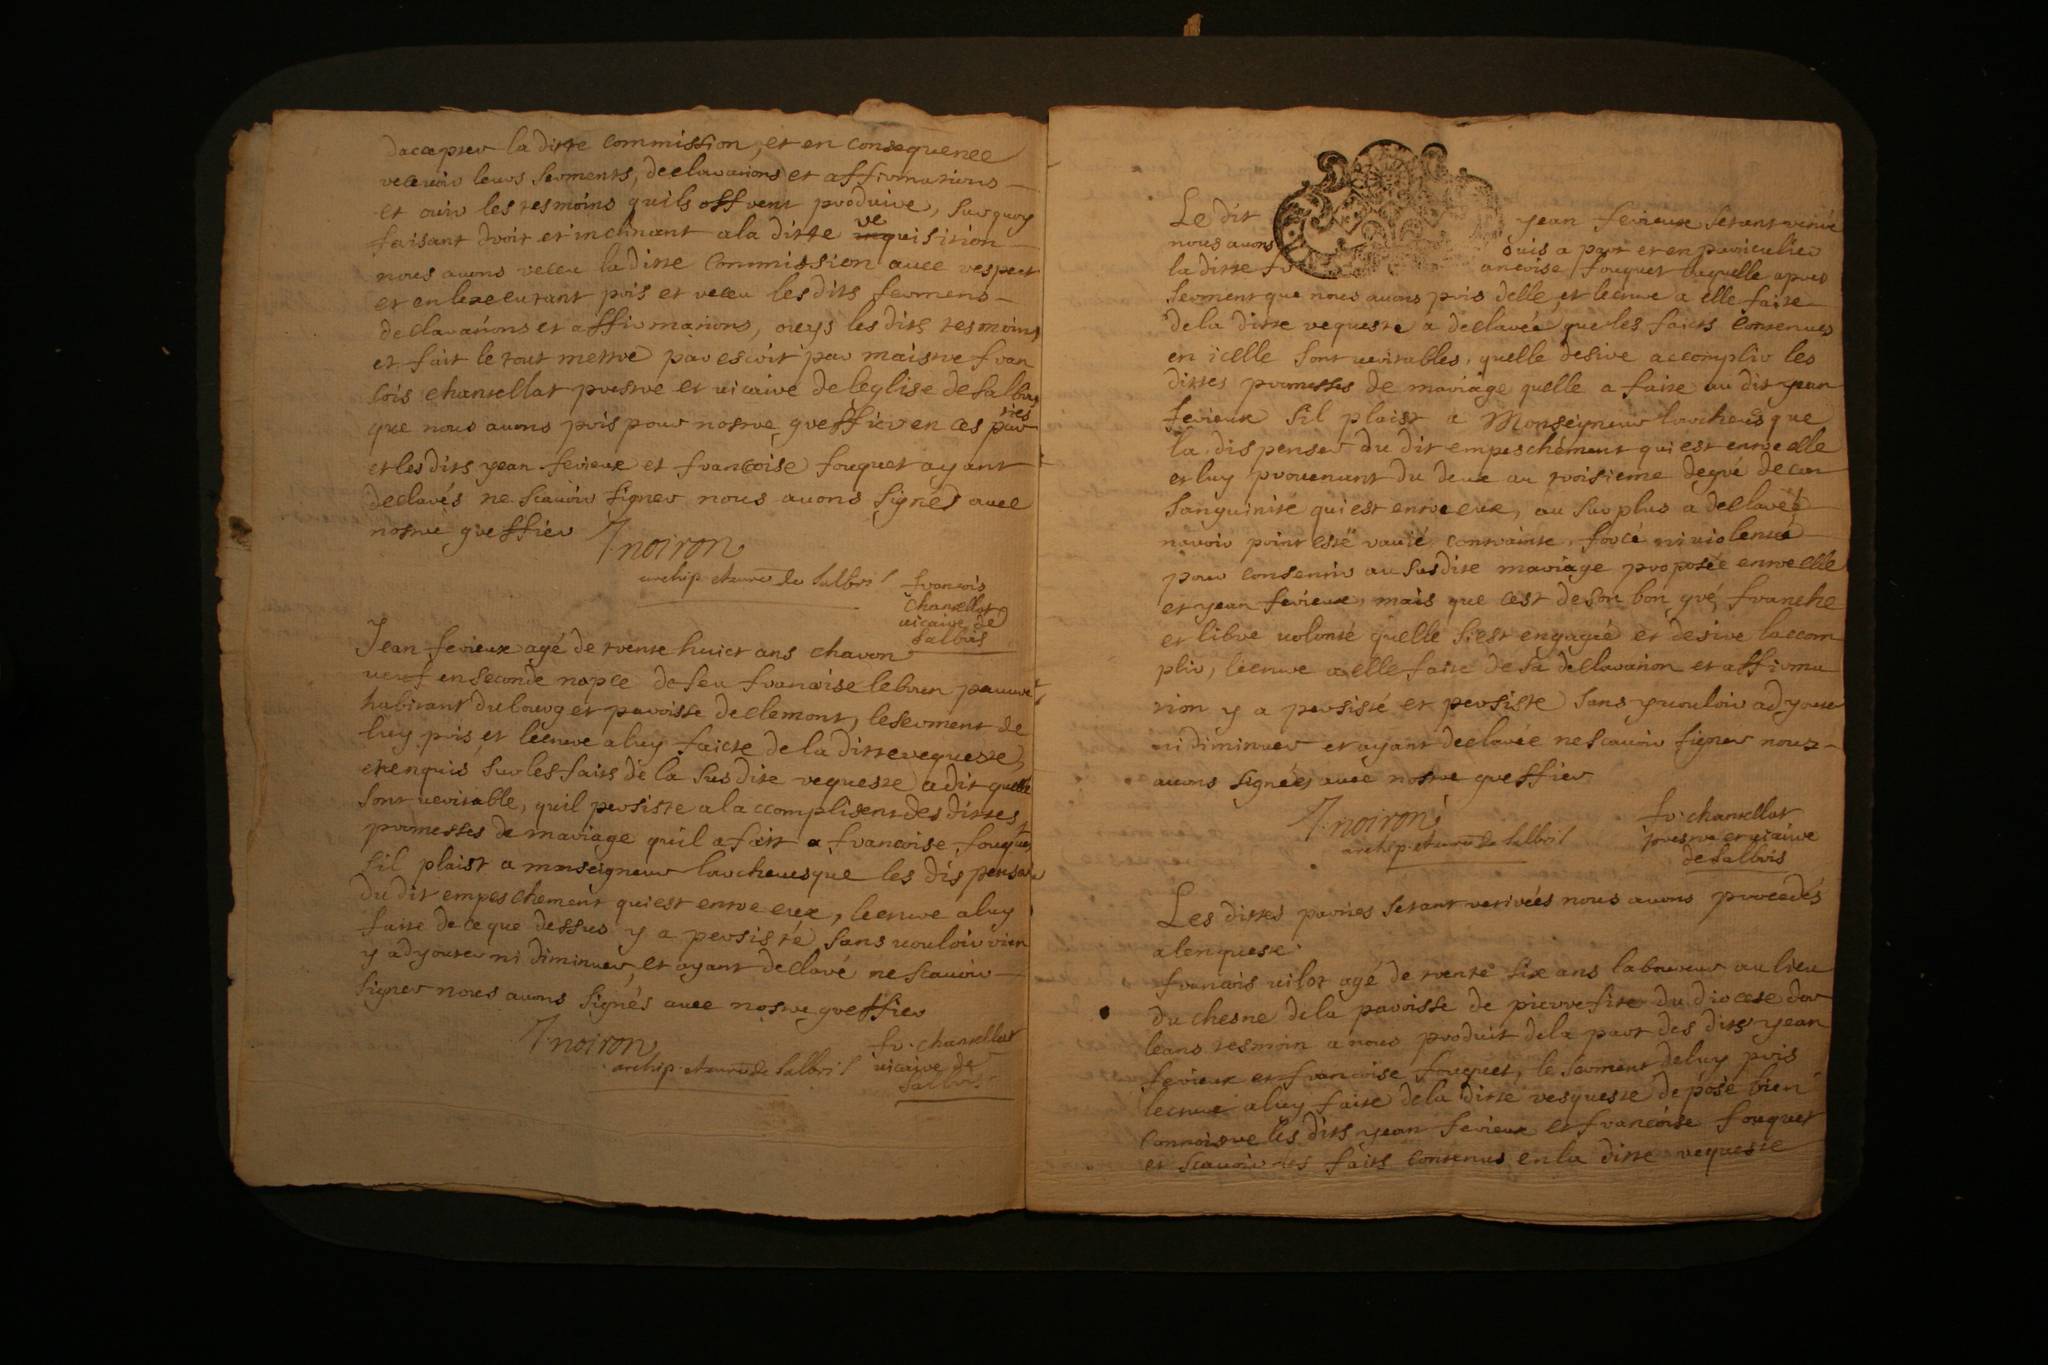 daccepter la ditte commission, et en consequence
recevoir leurs serments, declarations et affirmations
et ouir les tesmoins quils offrent produire, surquoy
faisant droit et inclinant a la ditte requisition
nous avons receu la ditte commission avec respect
et en lexecutant pris et receu les dits sermens
declarations et affirmations, oüys les dits tesmoins
et fait le tout mettre par escrit par maistre fran
cois chantellat prestre et vicaire de leglise de salbris
que nous avons pris pour nostre greffier en ces par
ties
et les dits yean ferieux et francoise fouquet ayant
declarés ne scavoir signer nous avons signés avec
nostre greffier
J noiron
archip. et curé de Salbris
francois
chantellat
vicaire de
salbris
Jean ferieux agé de trente huict ans charon
veuf en seconde nopce de feu francoise lebrun pauvre
habitant du bourg et paroisse de clemont, le serment de
luy pris et lecture a luy faicte de la ditte requeste,
et enquis sur les faits de la susdite requeste a dit quelle
sont veritable, quil persiste a laccomplisent des dittes
promesses de mariage quil a fait a francoise fouquet
sil plaist a monseigneur larchevesque les dispenser
du dit empeschement qui est entre eux, lecture a luy
faite de ce que dessus y a persisté sans vouloir rien
y adyouter ni diminuer, et ayant declaré ne scavoir
signer nous avons signés avec nostre greffier
J noiron
archip. et curé de Salbris
fr. chantellat
vicaire de
salbris
Le dit yean ferieux setant retiré
nous avons ouis a part et en particulier
la ditte francoise fouquet laquelle apres
serment que nous avons pris delle, et lecture a elle faite
de la ditte requeste a declarée que les faicts contenues
en icelle sont veritables, quelle desire accomplir les
dittes promesses de mariage quelle a faite au dit yean
ferieux sil plaist a Monseigneur larchevesque
la dispenser du dit empeschement qui est entre elle
et luy provenant du deux au troisieme degré de con
sanguinité qui est entre eux, au surplus a declaré
navoir point esté ravie, contrainte, forcé ni violentée
pour consentir au susdite mariage proposée entre elle
et yean ferieux, mais que cest de son bon gré, franche
et libre volonté quelle si est engagée et desire laccom
plir, lecture a elle faite de sa declaration et affirma
tion y a persisté et persiste sans y vouloir adyouter
ni diminuer et ayant declarée ne scavoir signer nous
avons signées avec nostre greffier
J. noiron
archip. et curé de Salbris
fr. chantellat
prestre et vicaire
de salbris
Les dittes parties setant retirées nous avons procedés
a lenqueste
francois vilot agé de trente six ans laboureur au lieu
du chesne de la paroisse de pierrefite du diocese dor
leans tesmoin a nous produit de la part des dits yean
ferieux et francoise fouquet, le serment de luy pris
lecture a luy faite de la ditte resqueste depose bien
connoistre les dits yean ferieux et francoise fouquet
et scavoir les faits contenus en la ditte requeste